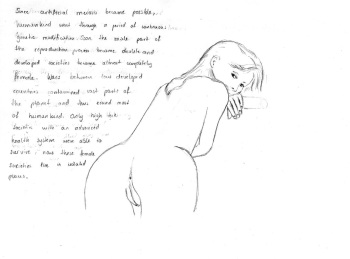 Since artificial meiosis became possible,
humankind went through a period of
genetic modification. Soon the male part of
the reproduction process became obsolete and
developed societies became almost completely
female. Wars between low developed
countries contaminated vast parts of
the planet and thus erased most
of humankind. Only high tech
societies with an advanced
health system were able to
survive. now these female
societies live in isolated
places.